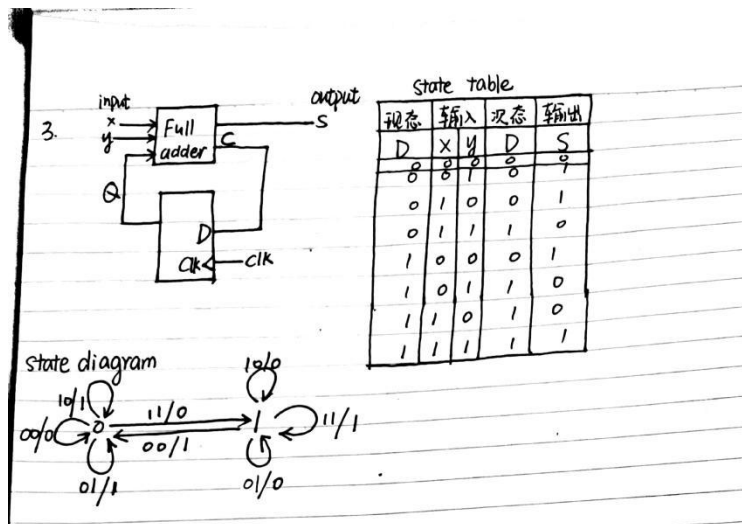 3.
input
x
y
Full
adder
C
output
S
Q
D
Clk
Clk
state table
现态 输入 次态 输出
D X Y D S
0 0 0 0 0
0 0 1 0 1
0 1 0 0 1
0 1 1 1 0
1 0 0 0 1
1 0 1 1 0
1 1 0 1 0
1 1 1 1 1
state diagram
10/1
00/0
0
01/1
11/0
00/1
10/0
1
11/1
01/0